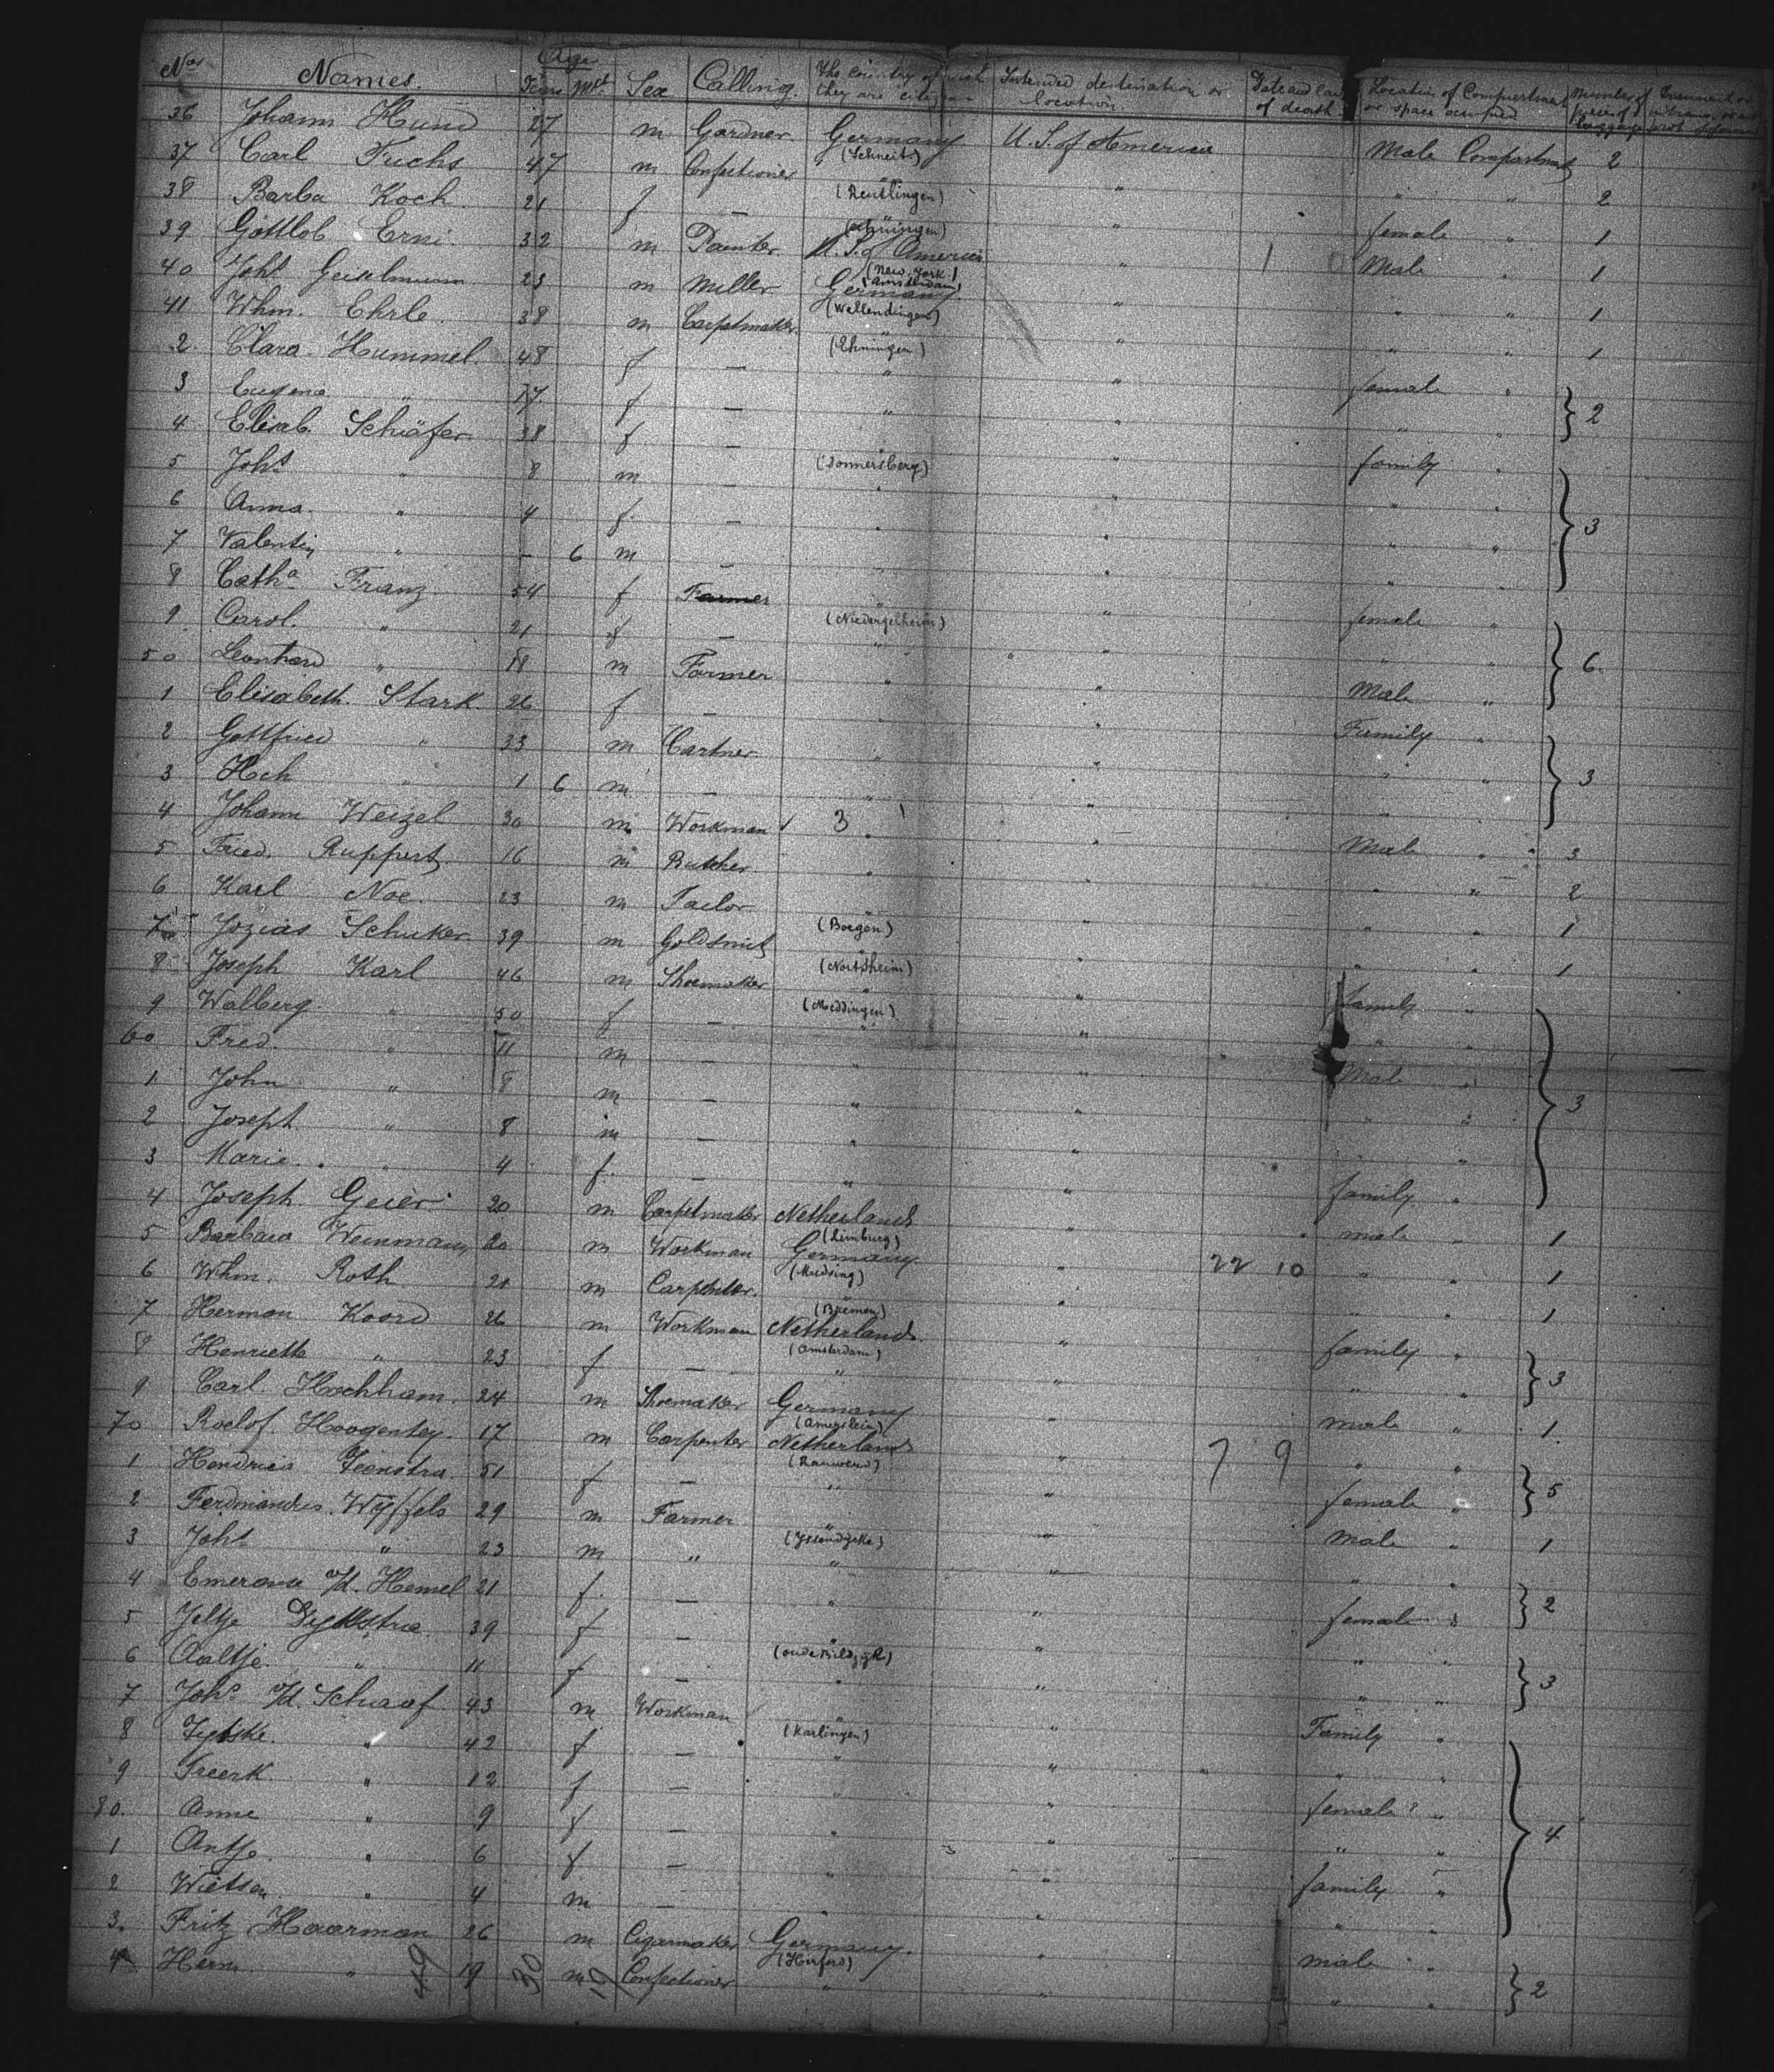 Nos Names. Age Years Mth Sex Calling. The country of which they are citizens Intended destination or location. Date and Cause of death Location of Compartment or space occupied Number of pieces of luggage
36 Johann Hund 27 m Gardner Germany U. S. of America Male Compartment 2
(Schneit)
37 Carl Fuchs 47 m Confectioner " " " " 2
(Reutlingen)
38 Barba Koch 21 f — " " female " 1
(Ehningen)
39 Gottlob Erni 32 m Painter U. S. of America " 1 Male " 1
(New York.)
(Amsterdam)
40 Johs Geiselmann 23 m Miller Germany " " " 1
(Wellendingen)
41 Whm. Ehrle 38 m Carpetmaker " " " " 1
(Ehningen)
2 Clara Hummel 48 f — " " female "
3 Eugene " 17 f — " " " " } 2
4 Elisab. Schäfer 38 f — " " family "
(Donnersberg)
5 Johs " 8 m — " " " "
6 Anna " 4 f. — " " " " } 3
7 Valentin " – 6 m — " " " "
8 Catha Franz 54 f Farmer " " female "
(Niedergelheim)
9 Carol. " 21 f — " " " " } 6.
50 Leonhard " 18 m Farmer " " Male "
1 Elisabeth. Stark. 26 f — " " Family "
2 Gottfried " 33 m Cartner " " " " } 3
3 Hch " 1 6 m — " " "
4 Johann Weizel 30 m Workman 3 " " Male " 3
5 Fried. Ruppert 16 m Butcher. " " " " 2
6 Karl Noe. 23 m Tailor " " " " 1
(Borgen)
7 Jozias Schuker 39 m Goldsmit " " " " 1
(Nortdheim)
8 Joseph Karl 46 m Shoemaker " " family "
(Meddingen)
9 Walberg " 50 f — " " " "
60 Fred. " 11 m — " " Male "
1 John " 8 m — " " " " } 3
2 Joseph " 8 m — " " "
3 Marie. " 4 f. — " " family "
4 Joseph Geier 20 m Carpetmaker Netherlands " male " 1
(Limburg)
5 Barbara Weinmann 20 m Workman Germany " 22 10 " " 1
6 Whm. Roth 21 m Carpenter. " " " " 1
(Bremen)
7 Herman Koord 26 m Workman Netherlands " family "
(Amsterdam)
8 Henriette " 23 f — " " " " } 3
9 Carl Hochham. 24 m Shoemaker Germany " male " 1.
70 Roelof. Hoogentey. 17 m Carpenter Netherland " 7 9 " "
(Rauwerd)
1 Hendrica Feenstra. 51 f — " " female " } 5
2 Ferdinandus. Wyffels 29 m Farmer " " Male " 1
3 Johs " 23 m " " " " "
4 Emerana v/d. Hemel 21 f. — " " female " } 2
5 Jeltje Dykstra 39 f — " " " "
6 Aaltje. " 11 f — " " " " } 3
7 Johs v/d. Schaaf 43 m Workman " " Family "
(Harlingen)
8 Tytske. " 42 f — " " " "
9 Freerk " 12 f — " " female "
80. Anne " 9 f — " " " " } 4
1 Antje. " 6 f — " " family "
2 Wietsen " 4 m — " " " "
3. Fritz Haarman 26 m Cigarmaker Germany. " male "
(Herford)
4 Herm. " 19 m Confectioner " " " " } 2
49 30 19